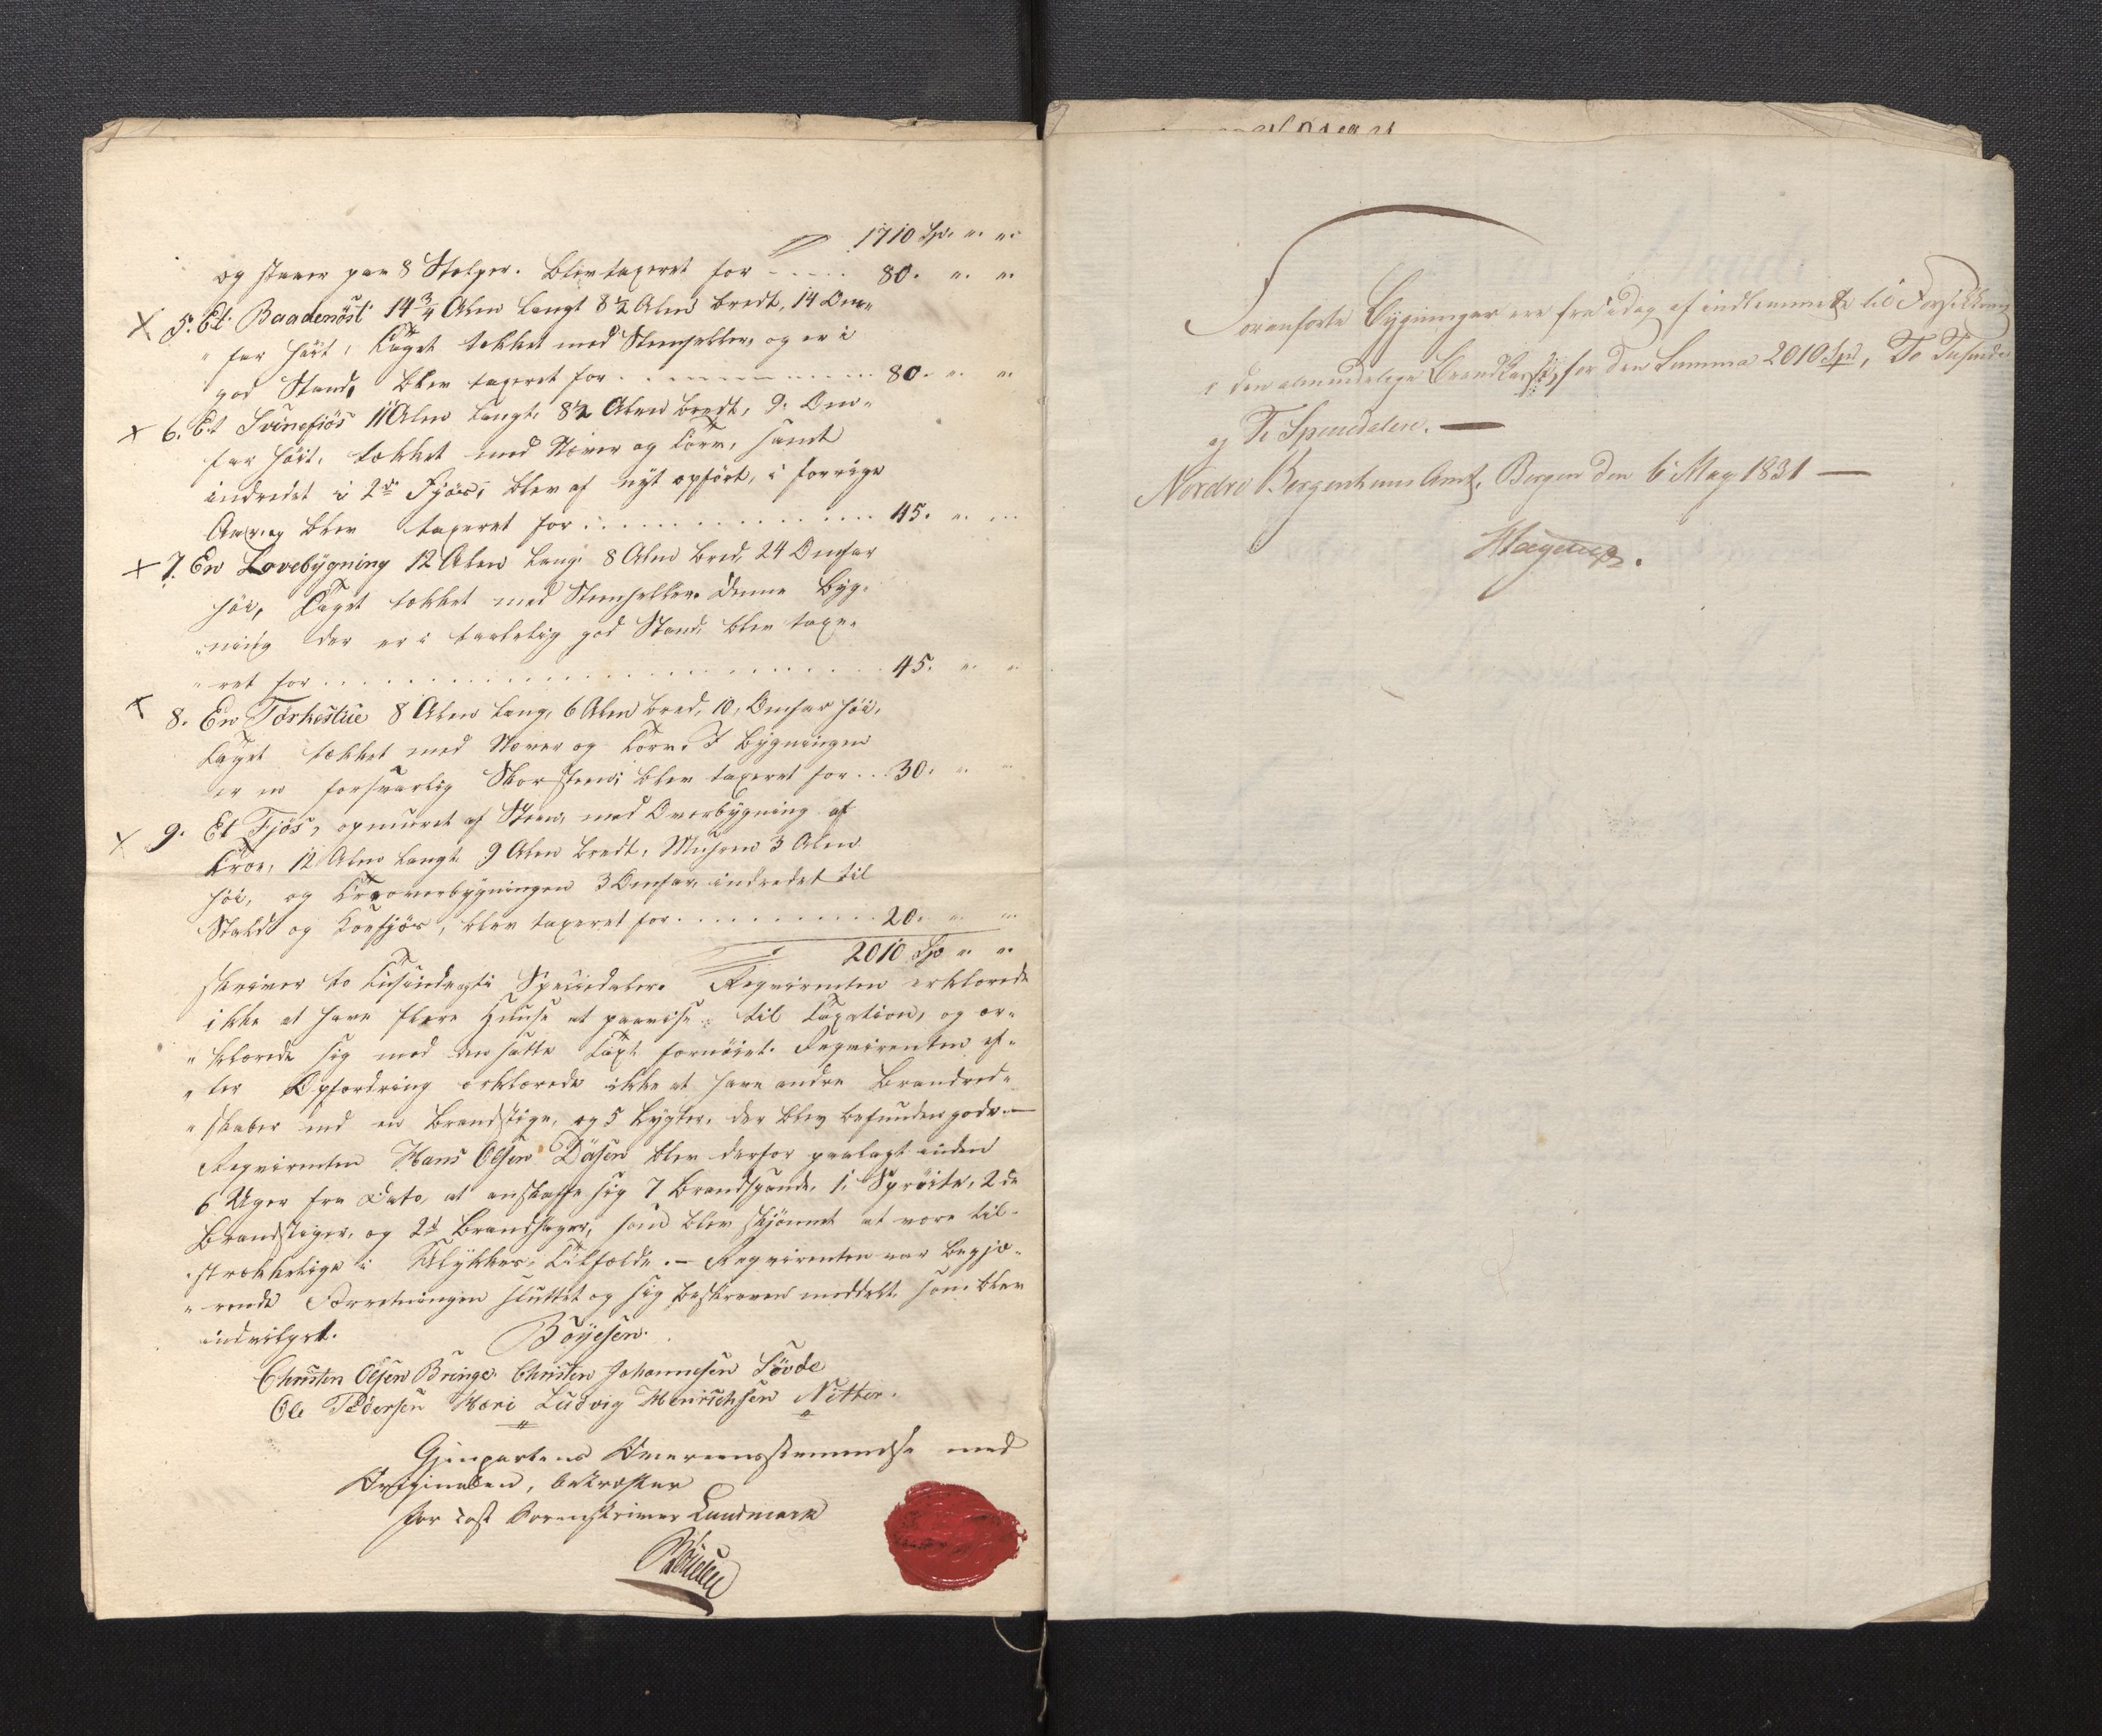 1710 Spd. " "
og staaer paa 8 Stolper. blev taxeret for ..... 80. " "
5. Et Baadenöst 14 3/4 Alen langt 8 1/2 Alen bredt, 14 Om"
" far höit, Taget tækket med Steenheller, og er i
god Stand, blev taxeret for ........... 80. " "
6. Et Svinefiös 11 Alen langt, 8 1/2 Alen bredt, 9. Om"
far höit, tækket med Næver og Torv, samt
indredet i 2de Fjöse, blev af nyt opfört, i forrige
Aar, og blev taxeret for ............ 45. " "
7. En Lovebÿgning 12 Alen lang, 8 Alen bred, 24 Omfar
höi, Taget tækket med Steenheller. Denne Byg"
"ning der er i taalelig god Stand, blev taxe"
"ret for .................... 45. " "
8. En Törkestue 8 Alen lang, 6 Alen bred, 10, Omfar höi,
Taget tækket med Næver og Torv. I bÿgningen
er en forsvarlig Skorsteen; blev taxeret for .. 30. " "
9. Et Fjös, opmuret af Steen, med Overbÿgning af
Træe, 12 Alen langt 9 Alen bredt, Muren 3 Alen
höi, og Træoverbygningen 3 Omfar, indredet til
Stald og Koefjös, blev taxeret for .......... 20. " "
2010 Spd " "
skriver to Tusinde og ti Speciedaler. Reqvirenten erklærede
ikke at have flere Huuse at paavise til Taxation, og er"
"klærede sig med den satte Taxt fornöiet. Reqvirenten ef"
"ter Opfordring erklærede ikke at have andre Brandred"
"skaber end en Brandstige, og 5 Lygter, der blev befunden gode. —
Reqvirenten Hans Olsen Dösen blev derfor paalagt inden
6 Uger fra Dato, at anskaffe sig 7 Brandspande, 1 Spröite, 2de
Brandstiger, og 2de Brandhager, som blev skjönnet at være til"
"strækkelige i Ulÿkkes Tilfælde. — Reqvirenten var begjæ"
"rende Forretningen sluttet og sig beskreven meddelt som blev
indvilget. Böÿesen.
Christen Olsen Bringe. Christen Johannesen Sövde
Ole Pedersen Ludvig Henrichsen Nitter.
Gjenpartens Overeensstemmelse med
Originalen, bekræfter
for cost Sorenskriver Landmark
Böÿesen
Foranforte Bygninger ere fra i dag af indlemmede til Forsikkring
i den almindelige BrandKasse, for den Summa 2010 Spd, To Tusinde
og Ti Speciedalere. —
Nordre Bergenhuus Amt, Bergen den 6 May 1831 —
Hagerup.